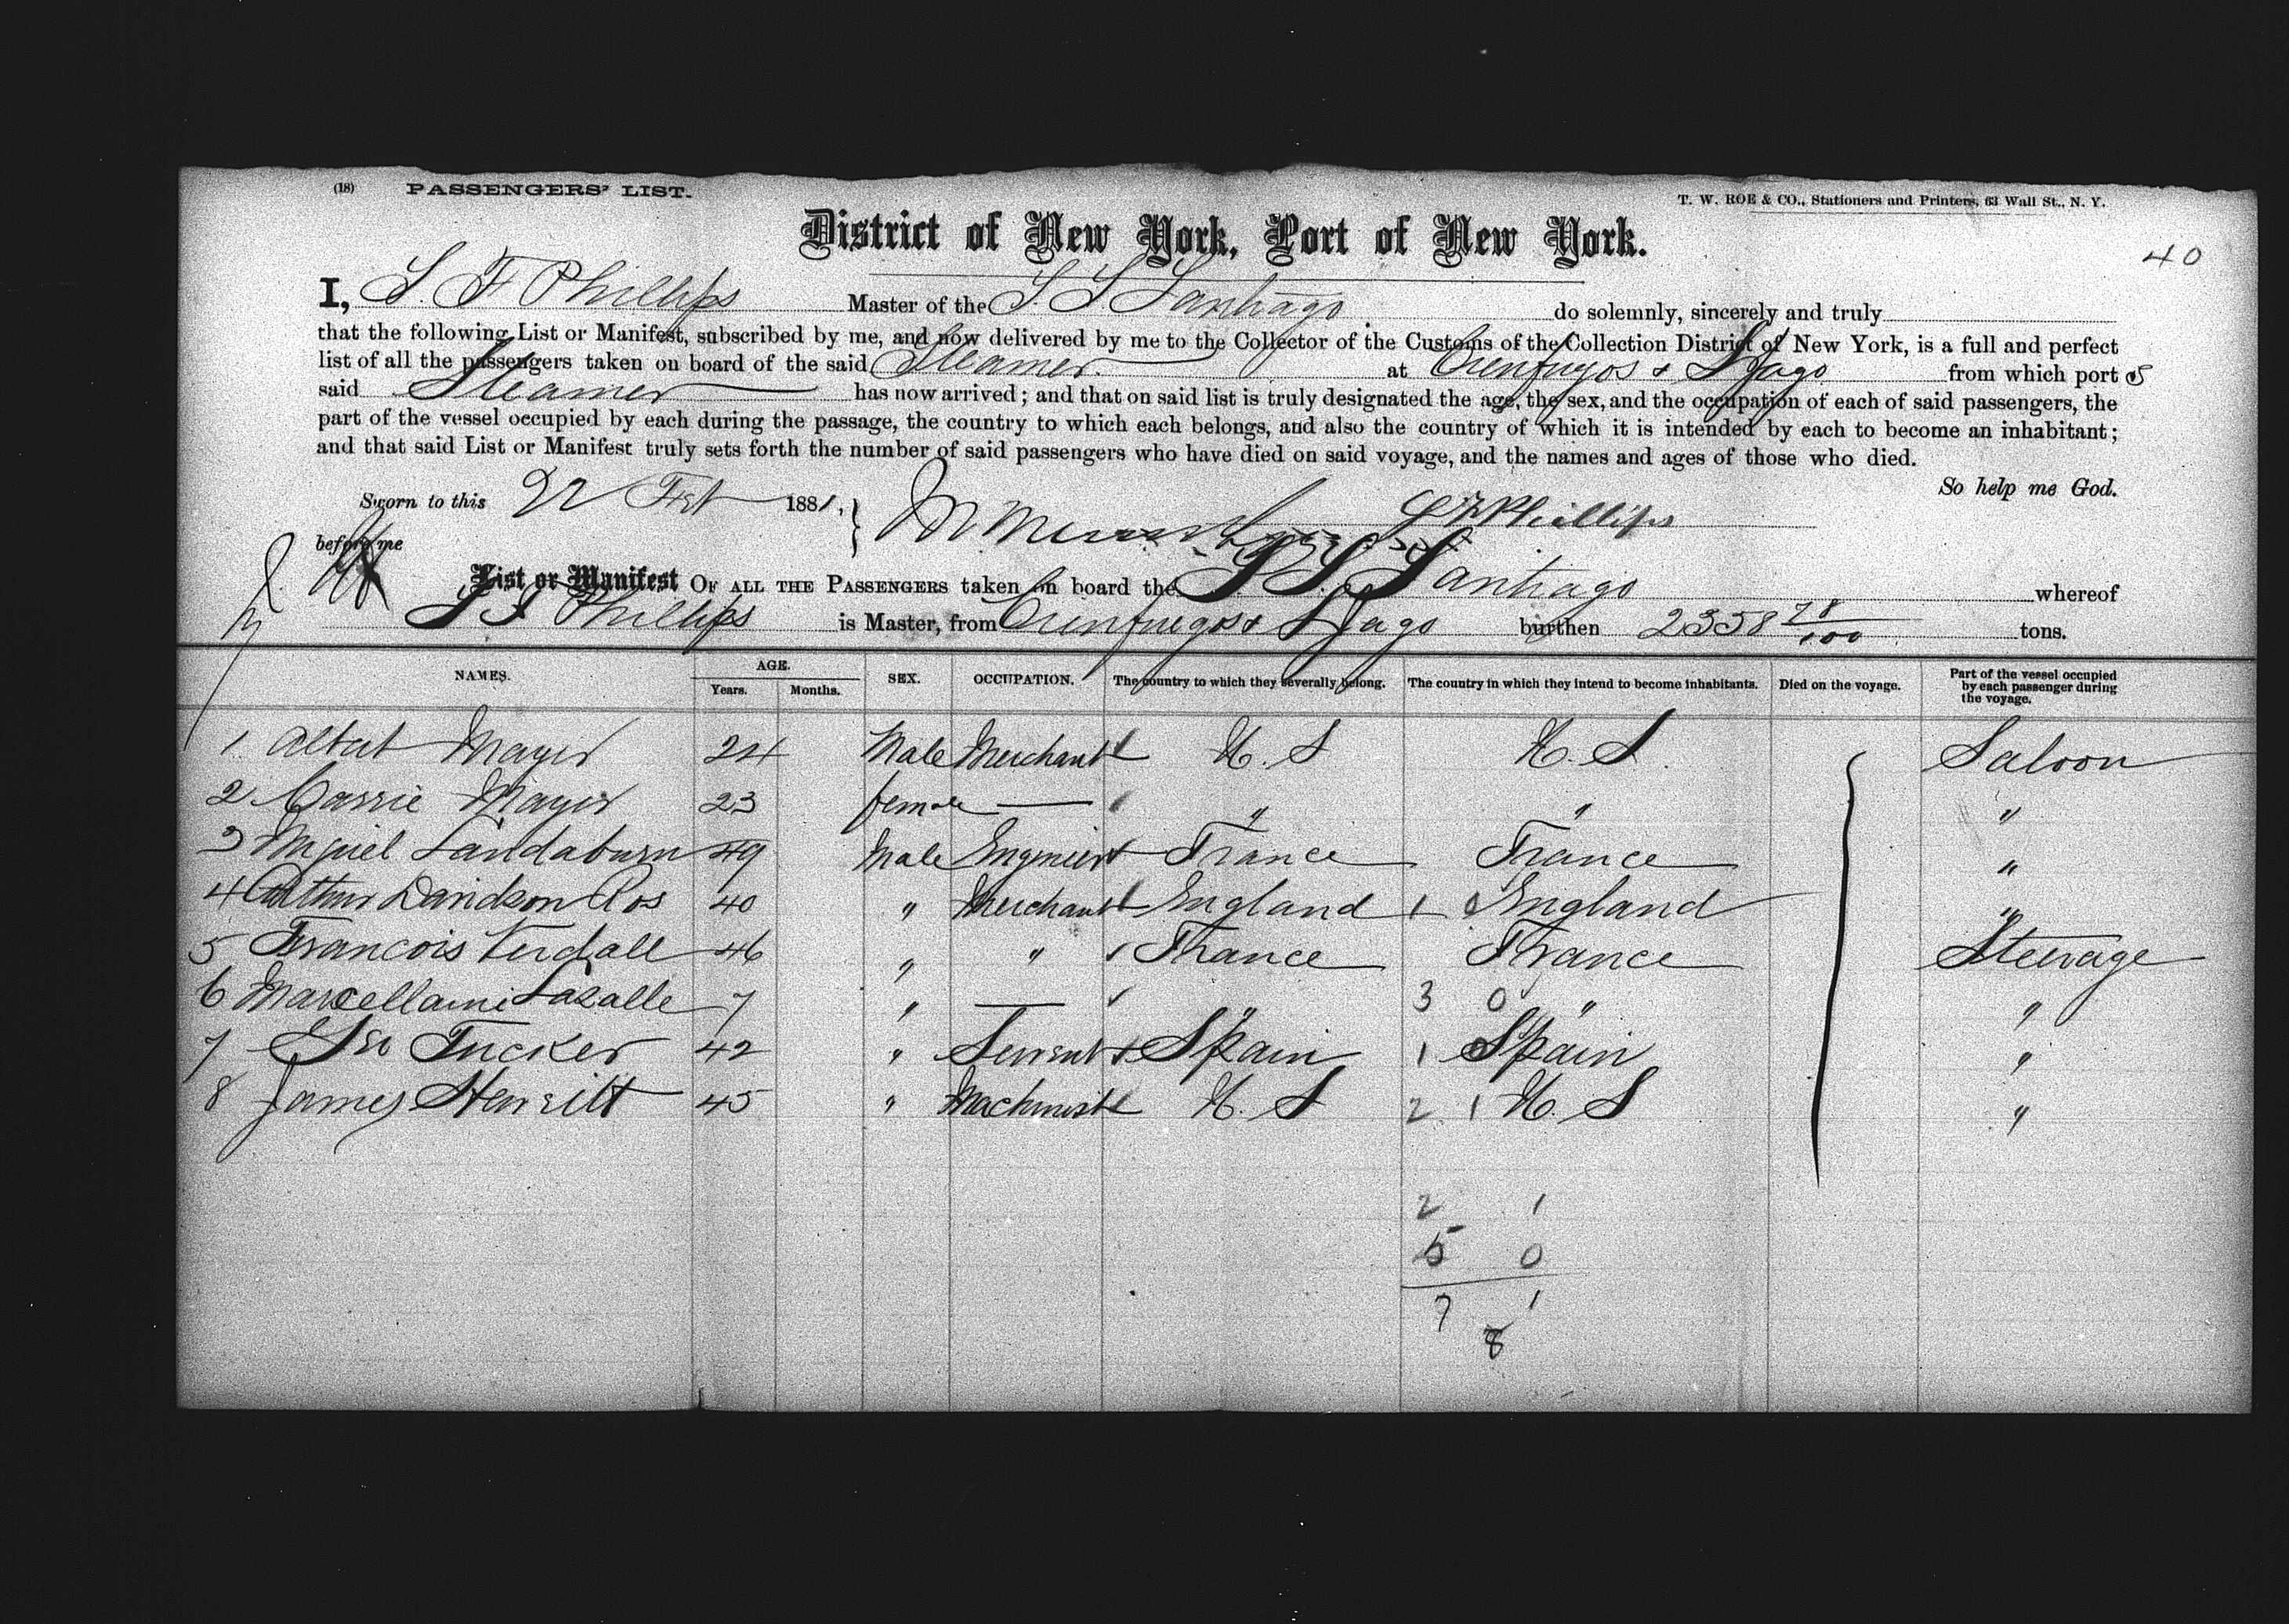 (18) PASSENGERS' LIST.
T. W. ROE & CO., Stationers and Printers, 63 Wall St., N. Y.
District of New York, Port of New York.
40
I, S. F Phillips Master of the S. S Santiago do solemnly, sincerely and truly
that the following List or Manifest, subscribed by me, and now delivered by me to the Collector of the Customs of the Collection District of New York, is a full and perfect
list of all the passengers taken on board of the said Steamer at Cienfugos & St Jago from which port s
said Steamer has now arrived; and that on said list is truly designated the age, the sex, and the occupation of each of said passengers, the
part of the vessel occupied by each during the passage, the country to which each belongs, and also the country of which it is intended by each to become an inhabitant;
and that said List or Manifest truly sets forth the number of said passengers who have died on said voyage, and the names and ages of those who died.
So help me God.
Sworn to this 22 1881, S F Phillips
before me
List or Manifest OF ALL THE PASSENGERS taken on board the S S Santiago whereof
S F Phillips is Master, from Cienfuegos & St Jago burthen 2358 78/100 tons.
NAMES. AGE. Years. Months. SEX. OCCUPATION. The country to which they severally belong. The country in which they intend to become inhabitants. Died on the voyage. Part of the vessel occupied by each passenger during the voyage.
1 Albert Mayer 24 Male Merchant U. S U. S. Saloon
2 Carrie Mayer 23 female — " " "
3 Miguel Landaburu 49 Male Engineer France France "
4 Arthur Davidson Ros 40 " Merchant England 1 0 England "
5 Francois Verdall 46 " " France France Steerage
6 Marcellami Lasalle 7 " — " 3 0 " "
7 Geo Tucker 42 " Servent Spain 1 0 Spain "
8 James Sterrilt 45 " Machinist U. S 2 1 U. S "
2 1
5 0
7 1
8